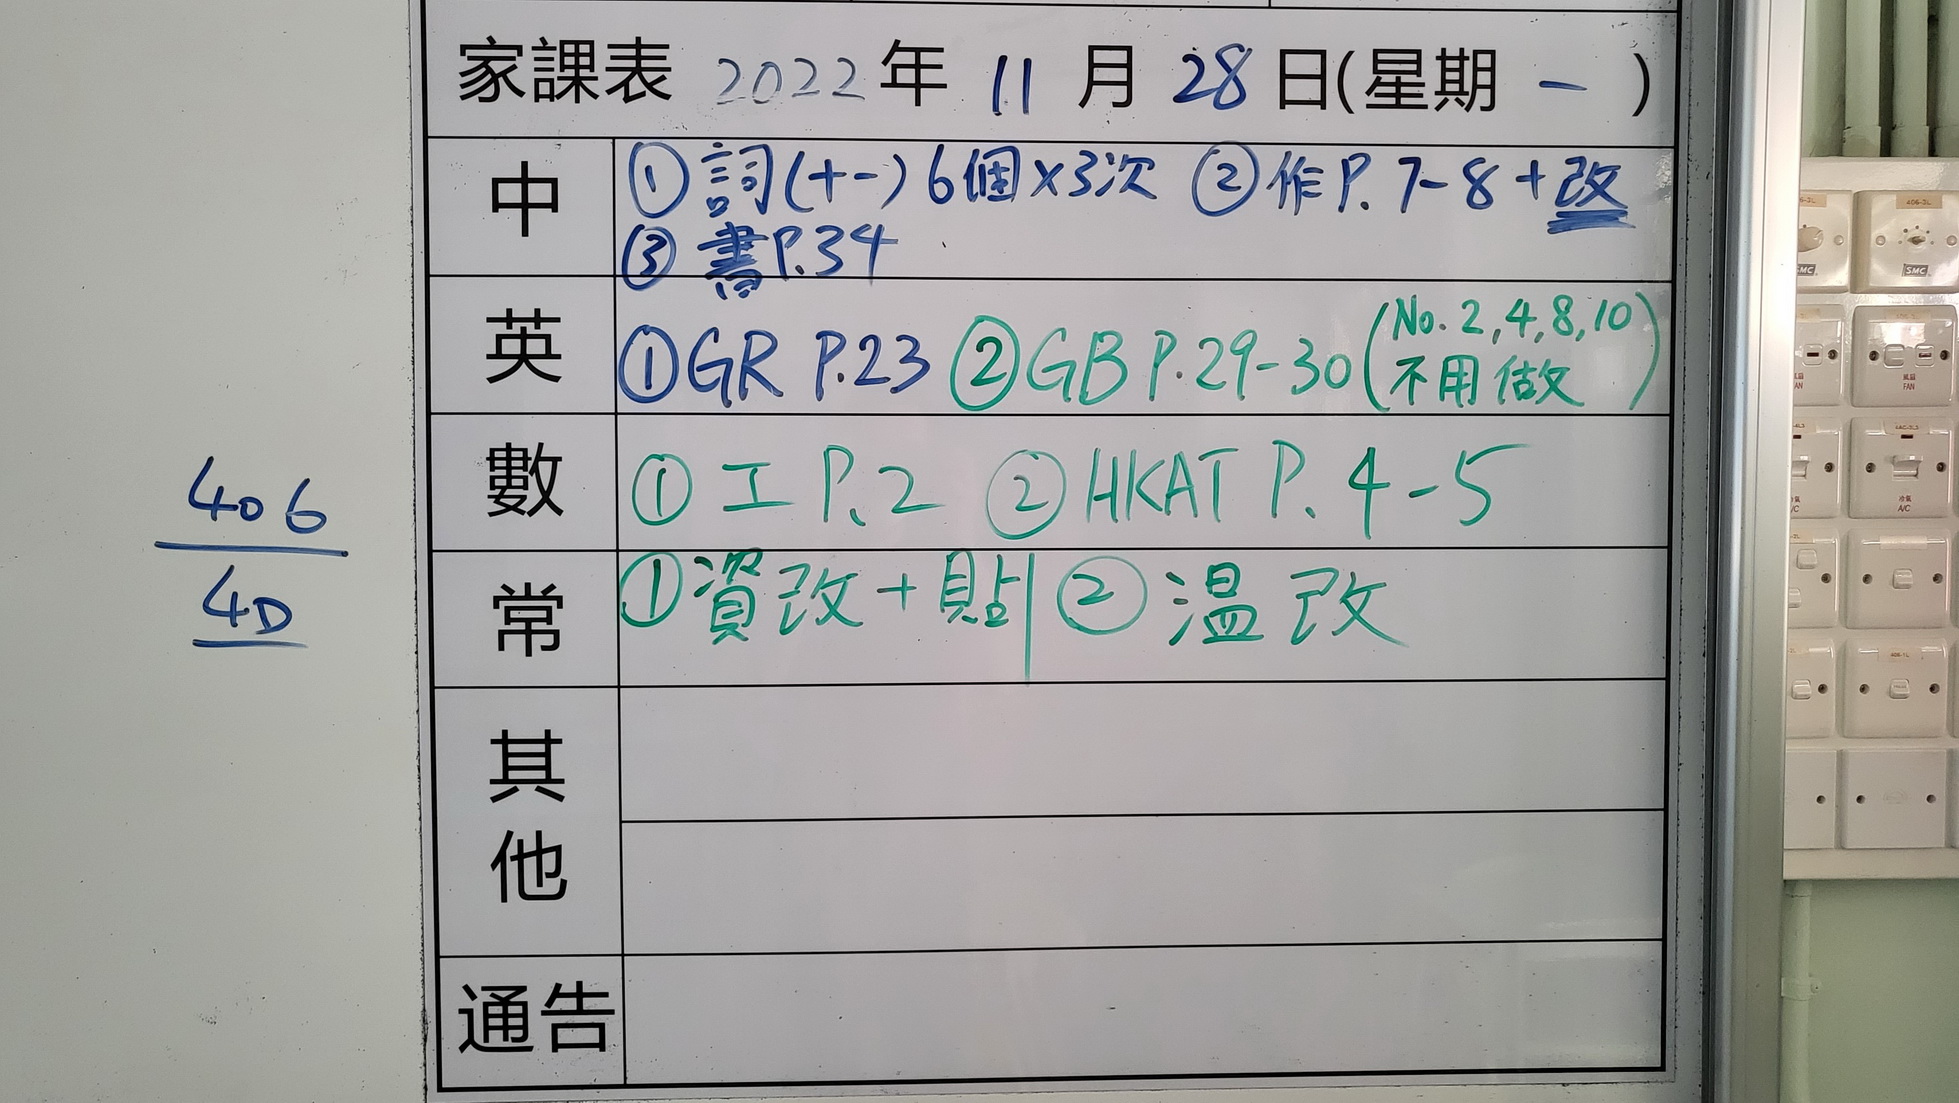 家課表 2022 年 11 月 28 日(星期 一 )
中 ① 詞(十一) 6個×3次 ② 作P. 7-8 + 改
③ 書P.34
英 ① GR P.23 ② GB P.29-30 (No. 2, 4, 8, 10
不用做)
數 ① 工 P.2 ② HKAT P. 4-5
常 ① 資改 + 貼 | ② 溫改
其他
通告
406
4D
406-3L
SMC
SMC
風扇
FAN
冷氣
A/C
406-1L